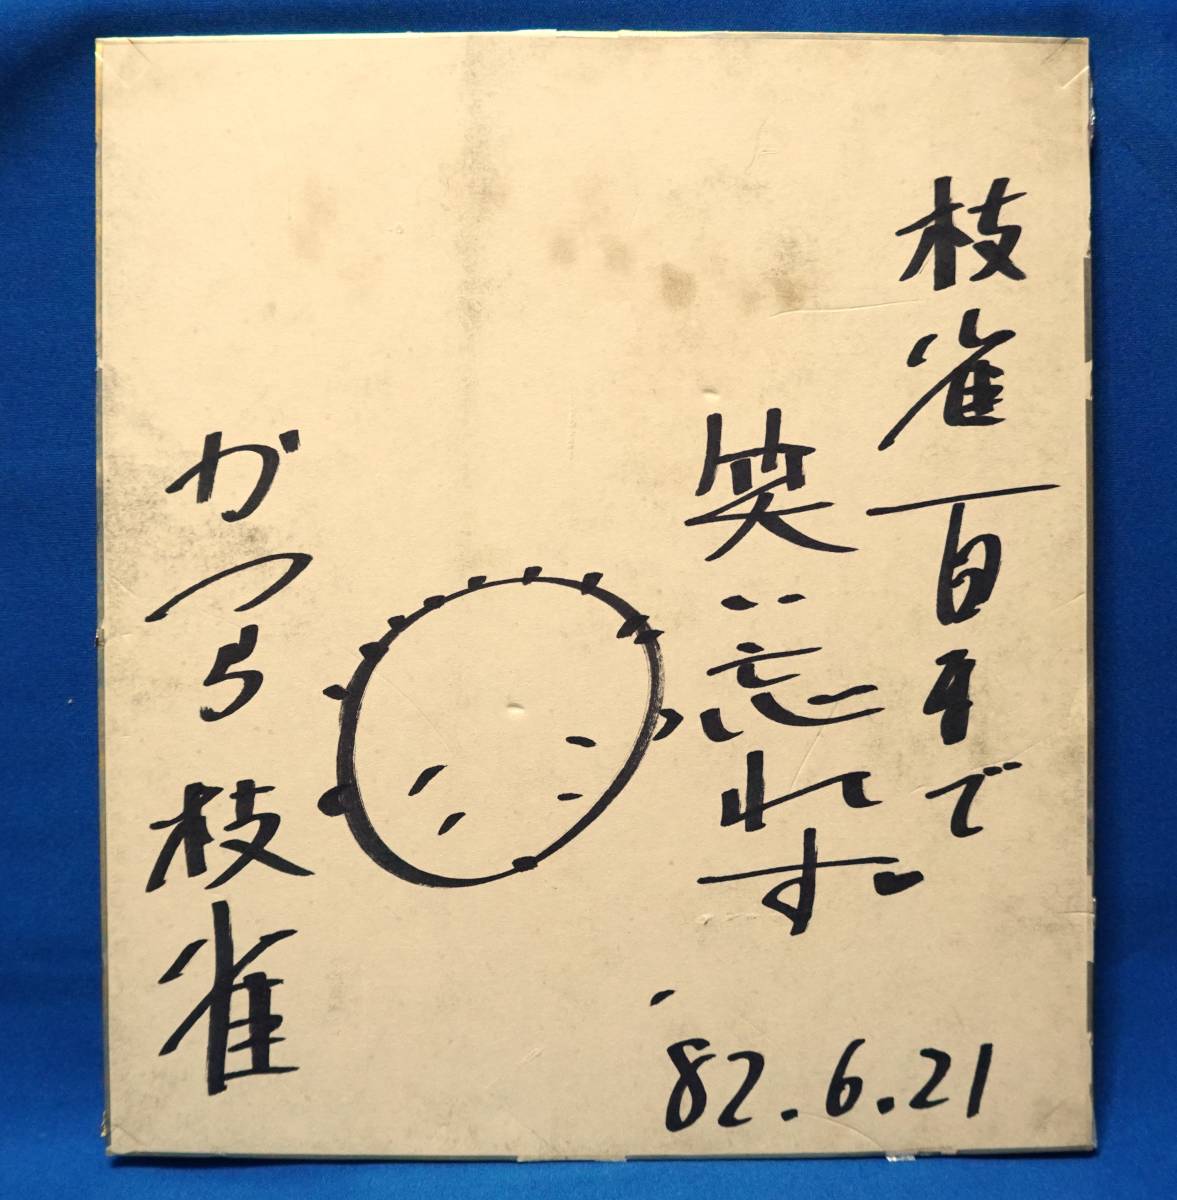 枝雀百まで
笑い忘れず
かつら枝雀
'82.6.21